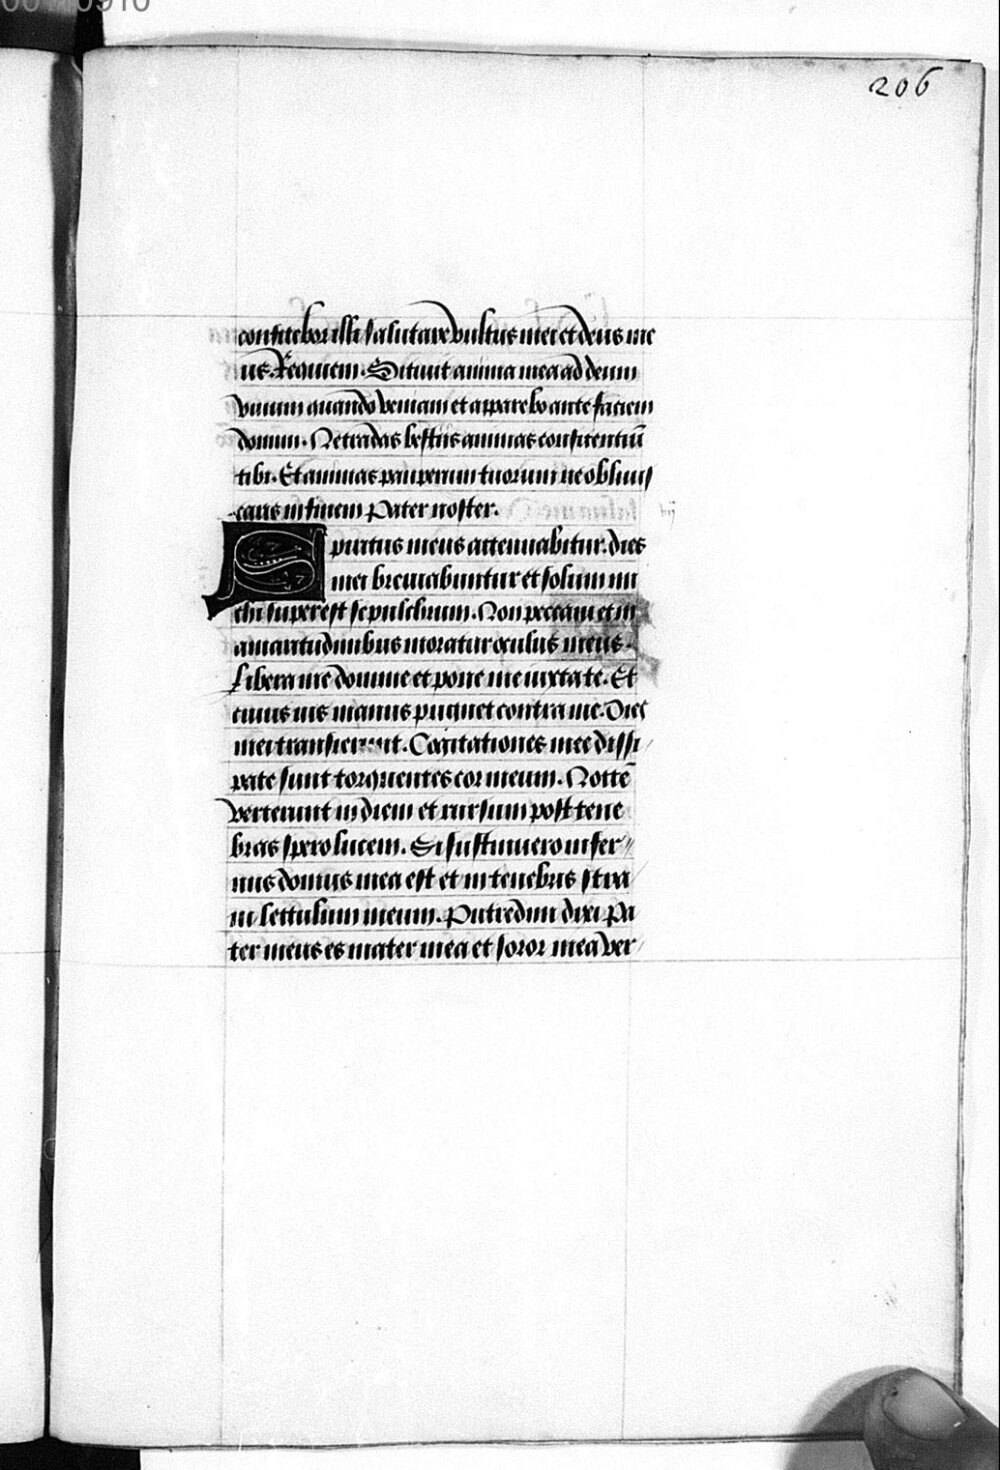 206
confitebor illi salutare vultus mei et deus me
us. Requiem. Sitiuit anima mea ad deum
viuum quando veniam et apparebo ante faciem
domini. Ne tradas bestiis animas confitentiū
tibi. Et animas pauperum tuorum ne obliuis
caris in finem Pater noster.
Spiritus meus attenuabitur. dies
mei breuiabuntur et solum mi
chi superest sepulchrum. Non peccaui et in
amaritudinibus moratur oculus meus.
Libera me domine et pone me iuxta te. Et
cuius uis manus pugnet contra me. Dies
mei transierunt. Cogitationes mee dissi
pate sunt torquentes cor meum. Nottē
verterunt in diem et rursum post tene
bras spero lucem. Si sustinuero infer
nus domus mea est et in tenebris stra
ui lettulum meum. Putredini dixi pa
ter meus es mater mea et soror mea ver